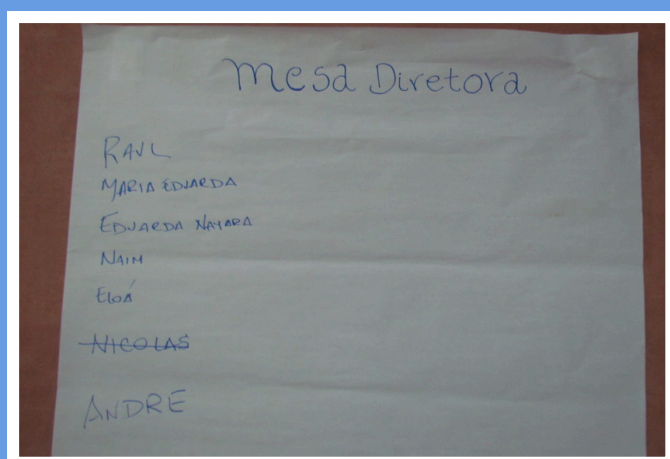 Mesa Diretora
RAUL
MARIA EDUARDA
EDUARDA NAYARA
NAIM
ELOÁ
NICOLAS
ANDRE